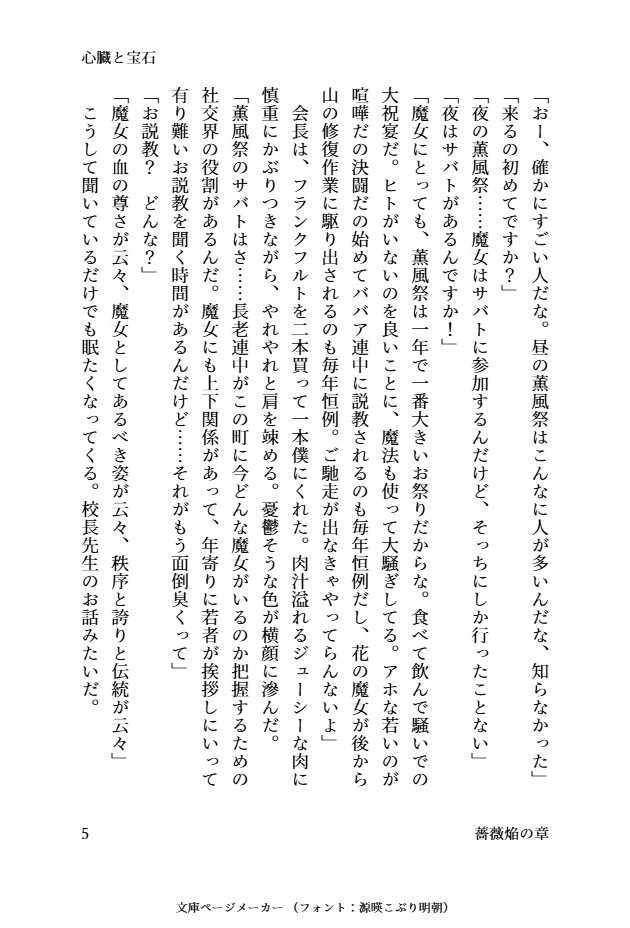 心臓と宝石
「おー、確かにすごい人だな。昼の薫風祭はこんなに人が多いんだな、知らなかった」
「来るの初めてですか？」
「夜の薫風祭……魔女はサバトに参加するんだけど、そっちにしか行ったことない」
「夜はサバトがあるんですか！」
「魔女にとっても、薫風祭は一年で一番大きいお祭りだからな。食べて飲んで騒いでの
大祝宴だ。ヒトがいないのを良いことに、魔法も使って大騒ぎしてる。アホな若いのが
喧嘩だの決闘だの始めてババア連中に説教されるのも毎年恒例だし、花の魔女が後から
山の修復作業に駆り出されるのも毎年恒例。ご馳走が出なきゃやってらんないよ」
　会長は、フランクフルトを二本買って一本僕にくれた。肉汁溢れるジューシーな肉に
慎重にかぶりつきながら、やれやれと肩を竦める。憂鬱そうな色が横顔に滲んだ。
「薫風祭のサバトはさ……長老連中がこの町に今どんな魔女がいるのか把握するための
社交界の役割があるんだ。魔女にも上下関係があって、年寄りに若者が挨拶しにいって
有り難いお説教を聞く時間があるんだけど……それがもう面倒臭くって」
「お説教？　どんな？」
「魔女の血の尊さが云々、魔女としてあるべき姿が云々、秩序と誇りと伝統が云々」
　こうして聞いているだけでも眠たくなってくる。校長先生のお話みたいだ。
5
薔薇焔の章
文庫ページメーカー（フォント：源暎こぶり明朝）